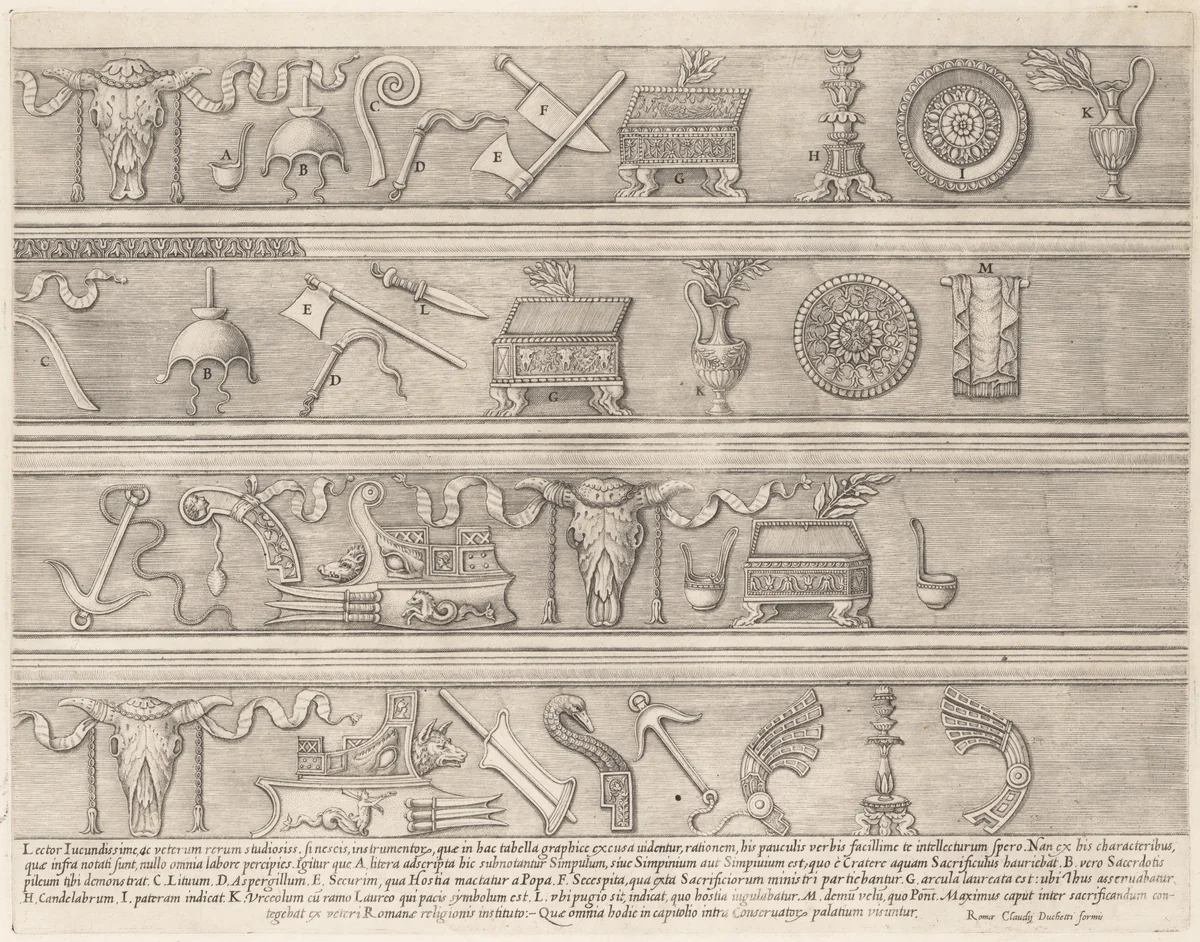 A B C D E F G H I K
C B E D L G K M
Lector Iucundissime, ac veterum rerum studiosiss. si nescis, instrumentorꝫ, quæ in hac tabella graphice excusa uidentur, rationem, his pauculis verbis facillime te intellecturum spero. Nan ex his characteribus,
quæ infra notati sunt, nullo omnia labore percipies. Igitur que A. litera adscripta hic subnotantur Simpulum, siue Simpinium aut Simpuuium est, quo è Cratere aquam Sacrificulus hauriebat. B. vero Sacerdotis
pileum tibi demonstrat. C. Lituum. D. Aspergillum. E. Securim, qua Hostia mactatur a Popa. F. Secespita, qua exta Sacrificiorum ministri partiebantur. G. arcula laureata est: ubi Thus asseruabatur.
H. Candelabrum. I. pateram indicat. K. Vrceolum cū ramo Laureo qui pacis symbolum est. L. vbi pugio sit, indicat, quo hostia iugulabatur. M. demū velū, quo Pont. Maximus caput inter sacrificandum con-
tegebat ex veteri Romanæ religionis instituto:- Quæ omnia hodie in capitolio intra Conseruatorꝫ palatium visuntur.
Romæ Claudij Duchetti formis